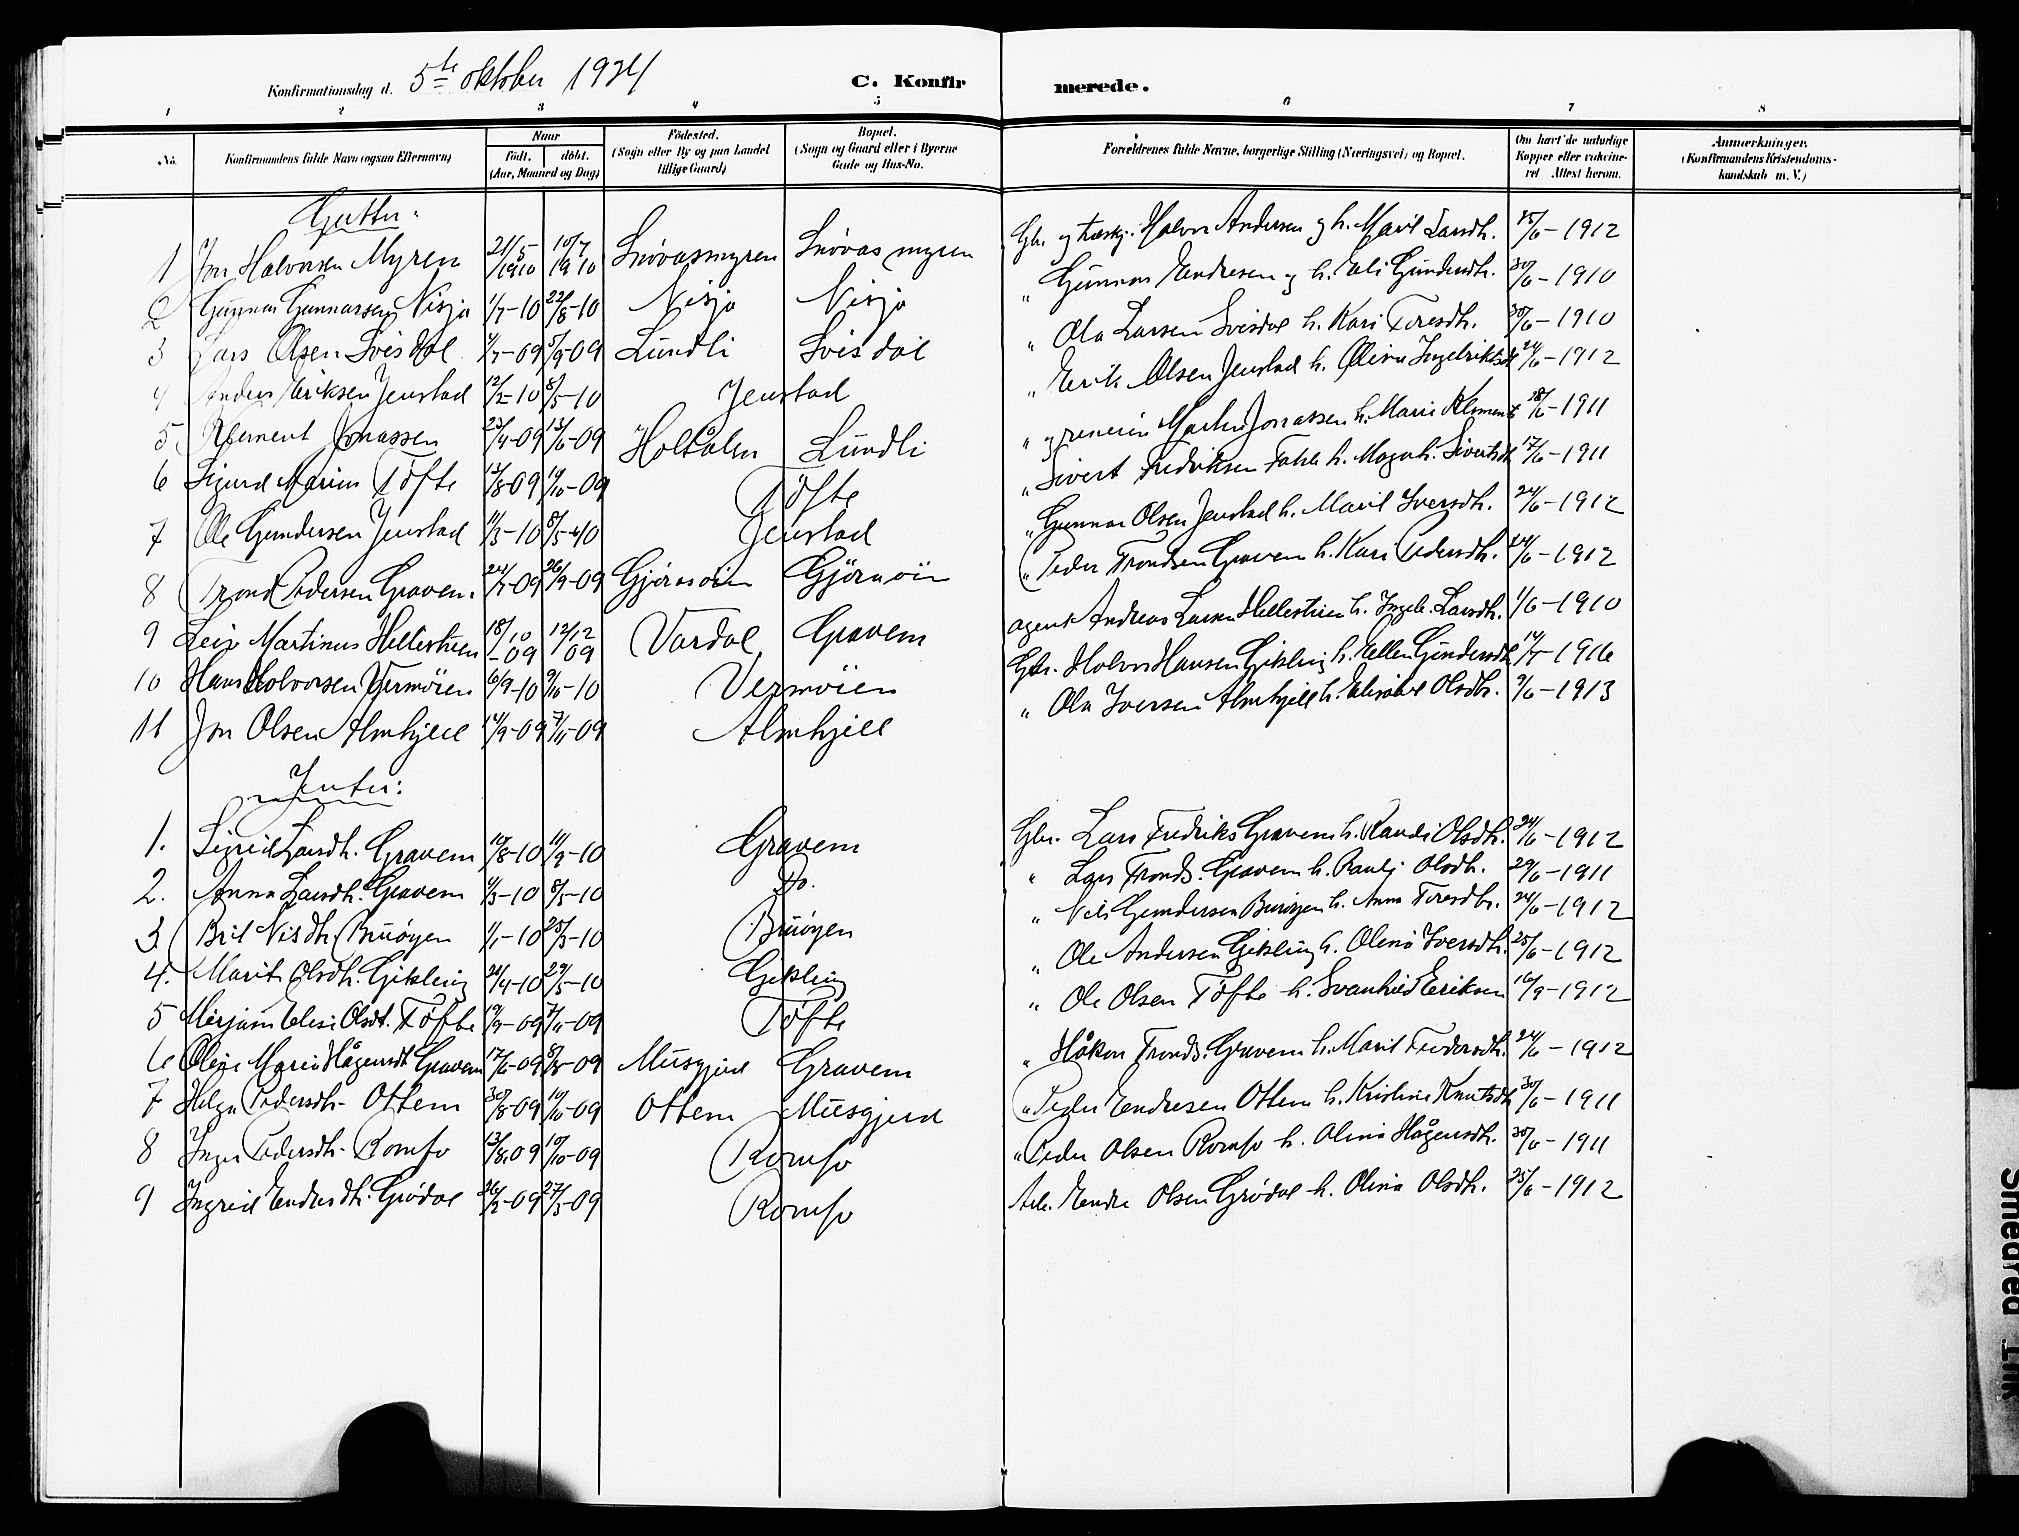 Konfirmationsdag d. 5te oktober 1924 C. Konfir merede.
1 2 3 4 5 6 7 8
No. Konfirmandens fulde Navn (ogsaa Efternavn) Naar født. døbt. (Aar, Maaned og Dag) Fødested. (Sogn eller By og paa Landet tillige Gaard) Bopæl. (Sogn og Gaard eller i Byerne Gade og Hus-No. Forældrenes fulde Navne, borgerlige Stilling (Næringsvei) og Bopæl. Om havt de naturlige Kopper eller vakcineret Attest herom. Anmærkninger. (Konfirmandens Kristendomskundskab m. V.)
Gutter:
1 Jon Halvorsen Myren 21/5 1910 10/7 1910 Snøvasmyren Snøvasmyren Gbr. og Halvor Andersen og h. Marit Larsdh. 25/6-1912
2 Gunnar Gunnarsen Nisja 1/7-10 22/8-10 Nisja Nisja " Gunnar Endresen og h. Eli Gundersdh. 30/6-1910
3 Lars Olsen Svisdal 7/7-09 5/9-09 Lundli Svisdal " Ola Larsen Svisdal h. Kari Toresdh. 30/6-1910
4 Anders Eriksen Jenstad 12/2-10 8/5-10 Jenstad " Erik Olsen Jenstad h. Olina Ingebriktsdt 24/6-1912
5 Klement Jonassen 23/4-09 13/6-09 Holtålen Lundli " og Martin Jonassen h. Marie Klements 28/6-1911
6 Sigurd Marius Tøfte 13/8-09 10/10-09 Tøfte " Sivert Fredriksen h. Magnh. Sivertsdt 17/6-1911
7 Ole Gundersen Jenstad 11/3-10 8/5-10 Jenstad " Gunnar Olsen Jenstad h. Marit Iversdh. 24/6-1912
8 Trond Pedersen Gravem. 24/7-09 26/9-09 Gjøraøin Gjøraøin " Peder Trondsen Gravem h. Kari Pedersdh. 24/6-1912
9 Leiv Martinus Hellestuen 18/10-09 12/12 09 Vardal Gravem agent Andreas Larsen Hellestuen h. Ingeb. Larsdh. 1/6-1910
10 Hans Halvorsen Vermøien 6/9-10 9/10-10 Vermøien Gbr. Halvor Hansen Gikling h. Ellen Gundersdh 14/7-1916
11 Jon Olsen Almhjell 14/9-09 7/11-09 Almhjell " Ola Iversen Almhjell h. Olsdh. 9/6-1913
Jenter:
1. Sigrid Larsdh. Gravem 10/8-10 11/9-10 Gravem Gbr. Lars Fredriks Gravem h. Randi Olsdh. 24/6-1912
2. Anna Larsdh. Gravem 11/3-10 8/5-10 Do. " Lars Tronds. Gravem h. Olsdh. 29/6-1911
3. Brit Nilsdh. Bruøyen 1/1-10 25/3-10 Bruøyen " Nils Gundersen Bruøyen h. Anna Toresdtr. 24/6-1912
4. Marit Olsdh. Gikling 20/4-10 29/5-10 Gikling " Ole Andersen Gikling h. Olina Iversdh. 25/6-1912
5 Mirjam Elise Olsdt. Tøfte 19/9-09 7/11-09 Tøfte " Ole Olsen Tøfte h. Svanhild Eriksen 16/9-1912
6 Oline Marie Håkensdt Gravem 17/6-09 8/8-09 Musgjerd Gravem " Håken Tronds. Gravem h. Marit Fredersdh. 24/6-1912
7 Helga Pedersdh. Ottem 30/8-09 10/10-09 Ottem Musgjerd " Peder Endresen Ottem h. Kristine Knutsdh 30/6-1911
8 Inger Pedersdh. Romfo 13/8.09 10/10-09 Romfo " Peder Olsen Romfo h. Olina Håkensdh. 30/6-1911
9 Ingrid Endresdh. Grødal 26/2-09 27/3-09 Romfo Arb. Endre Olsen Grødal h. Olina Olsdh. 25/6-1912